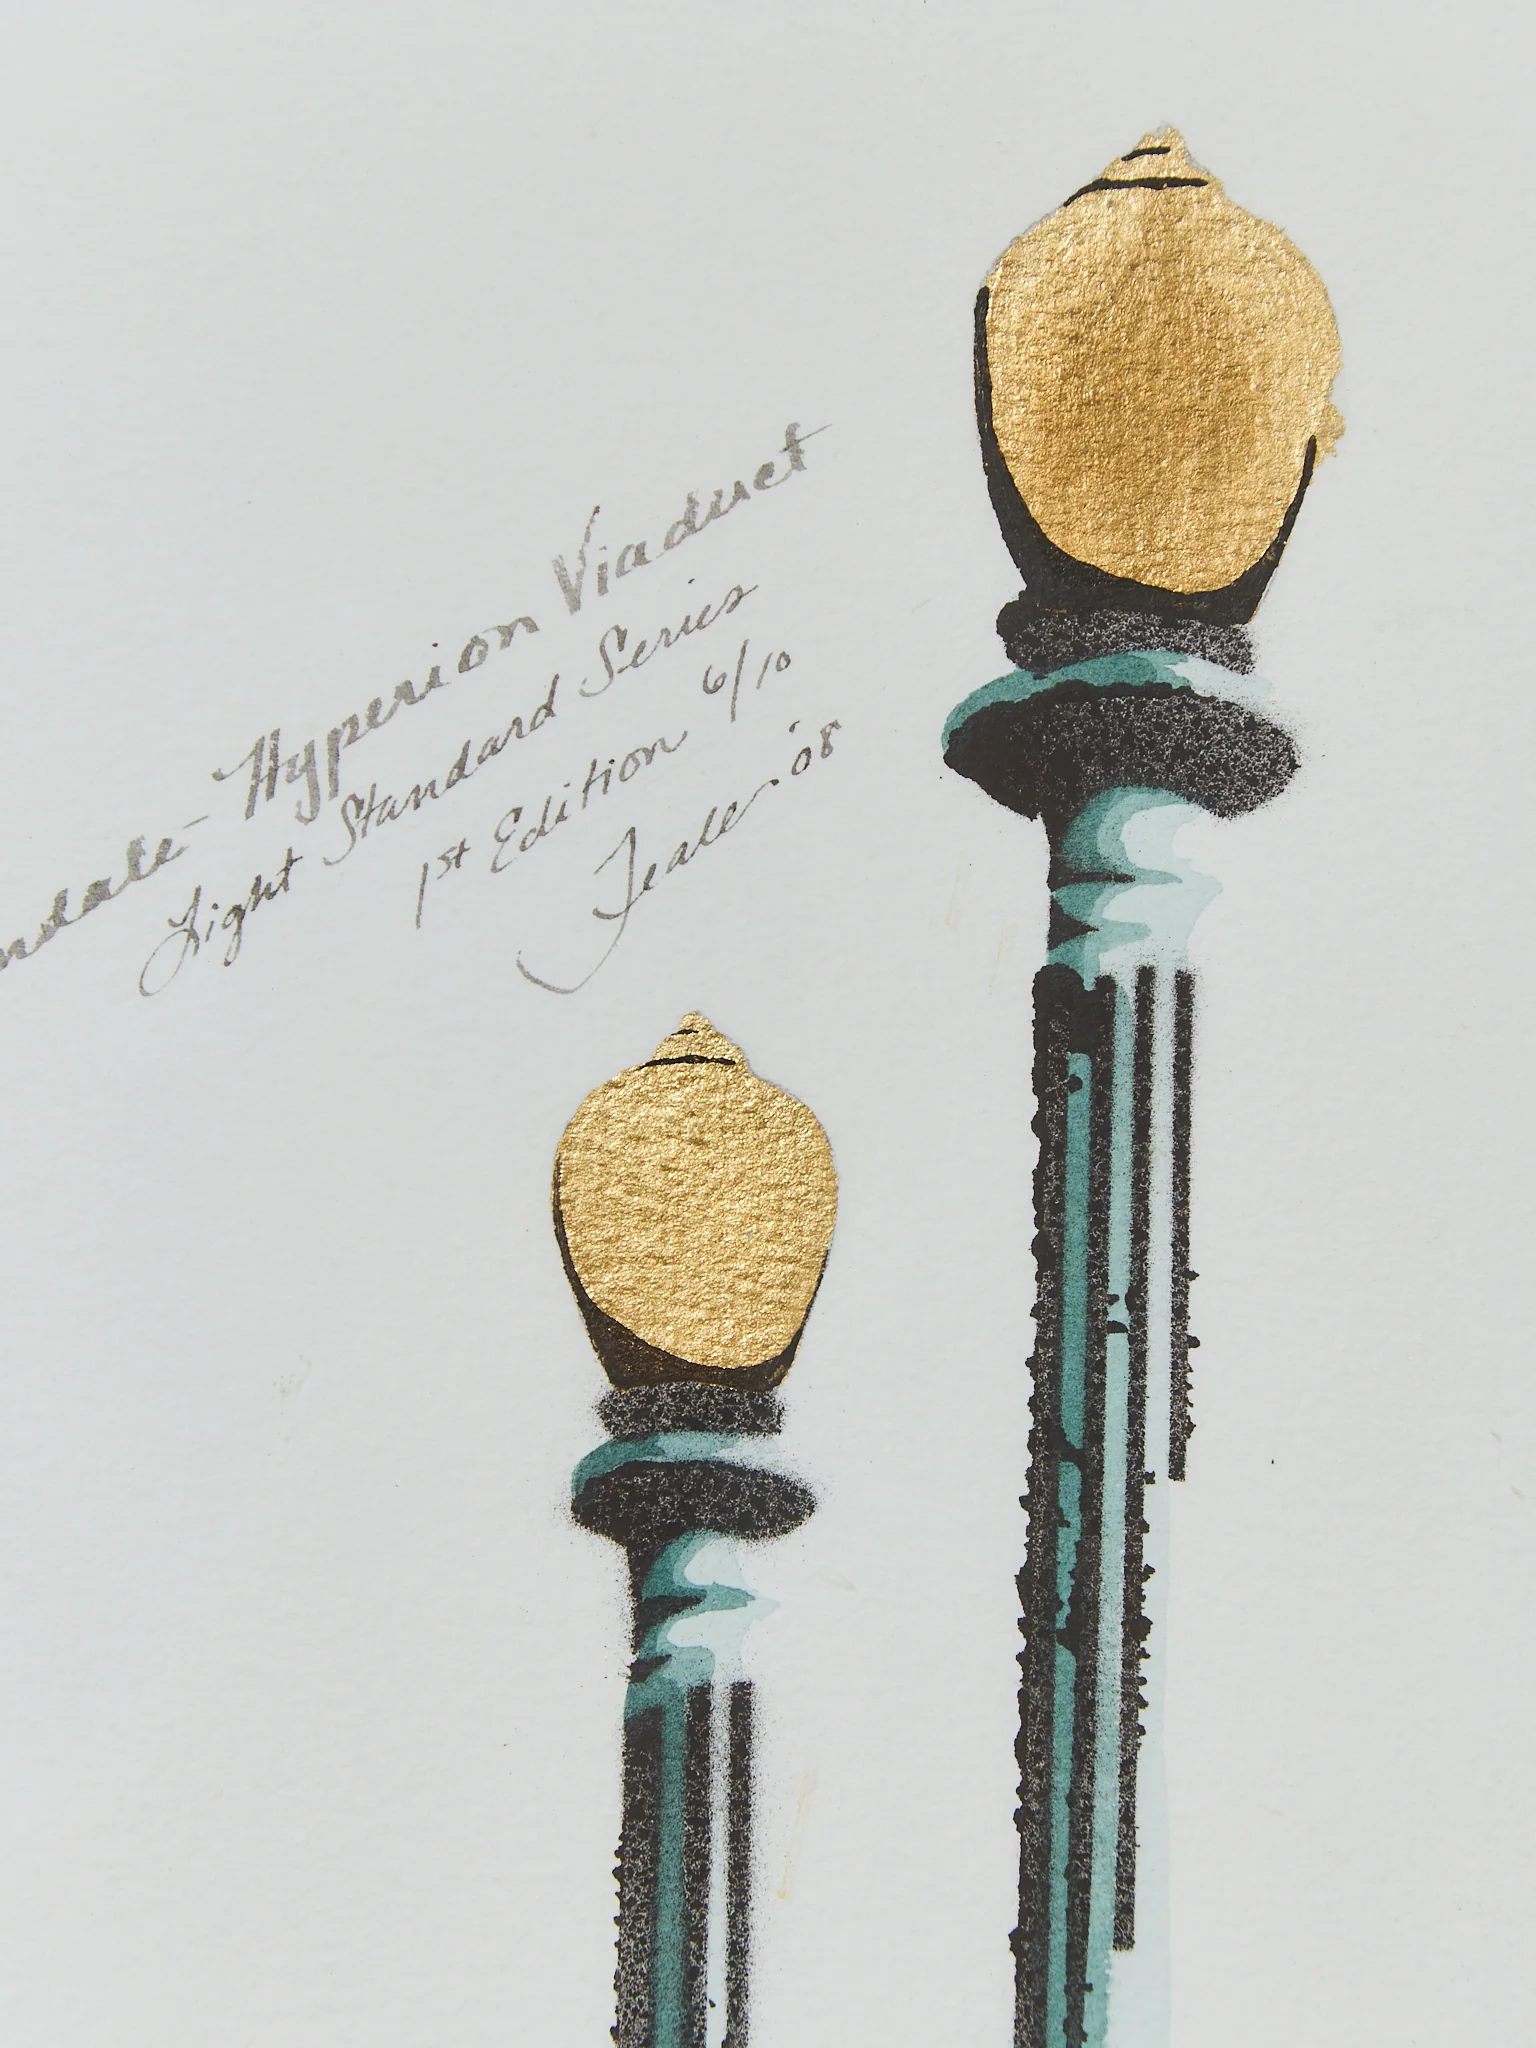 ndale-Hyperion Viaduct
Light Standard Series
1st Edition 6/10
'08